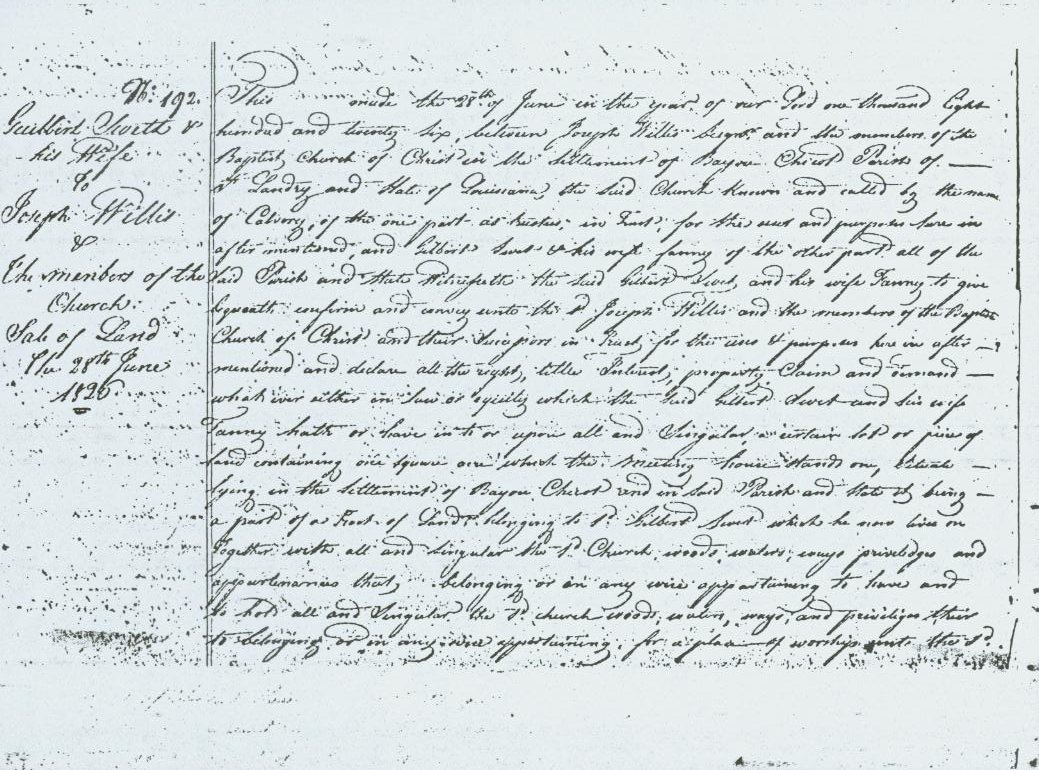 No: 192.
Guilbirt Sweth &
his Wife
to
Joseph Willis
&
The members of the
Church.
Sale of Land
The 28th June
1826
This made the 28th of June in the year of our Lord one thousand Eight
hundred and twenty six between Joseph Willis and the members of the
Baptist Church of Christ in the Settlement of Bayou Chicot Parish of —
St Landry and State of Louisiana, the said Church known and called by the name
of Calvery, of the one part as trustees, in Trust, for the uses and purposes here in
after mentioned, and Gilbert Swet & his wife fanny of the other part all of the
said Parish and State Witnesseth the said Gilbert Swet, and his wife Fanny to give
bequeath confirm and convey unto the sd Joseph Willis and the members of the Baptist
Church of Christ and their Sucessors in Trust for the uses & purposes here in after —
mentioned and declare all the right, title Interest, property Claim and demand —
what ever either in law or equity which the said Gilbert Swet and his wife
Fanny hath or have in to or upon all and Singular, a certain lot or piece of
land containing one square acre which the meeting house stands on, Situate —
lying in the Settlement of Bayou Chicot and in said Parish and State it being —
a part of a Tract of Land belonging to sd Gilbert Swet which he now lives on
Together with all and Singular the sd Church, woods, waters, ways priviledges and
appurtenances belonging or in any wise appertaining to have and
to hold all and Singular the sd church woods, waters, ways, and priviliges their
to belonging or in any wise appertaining, for a place of worship unto the sd.